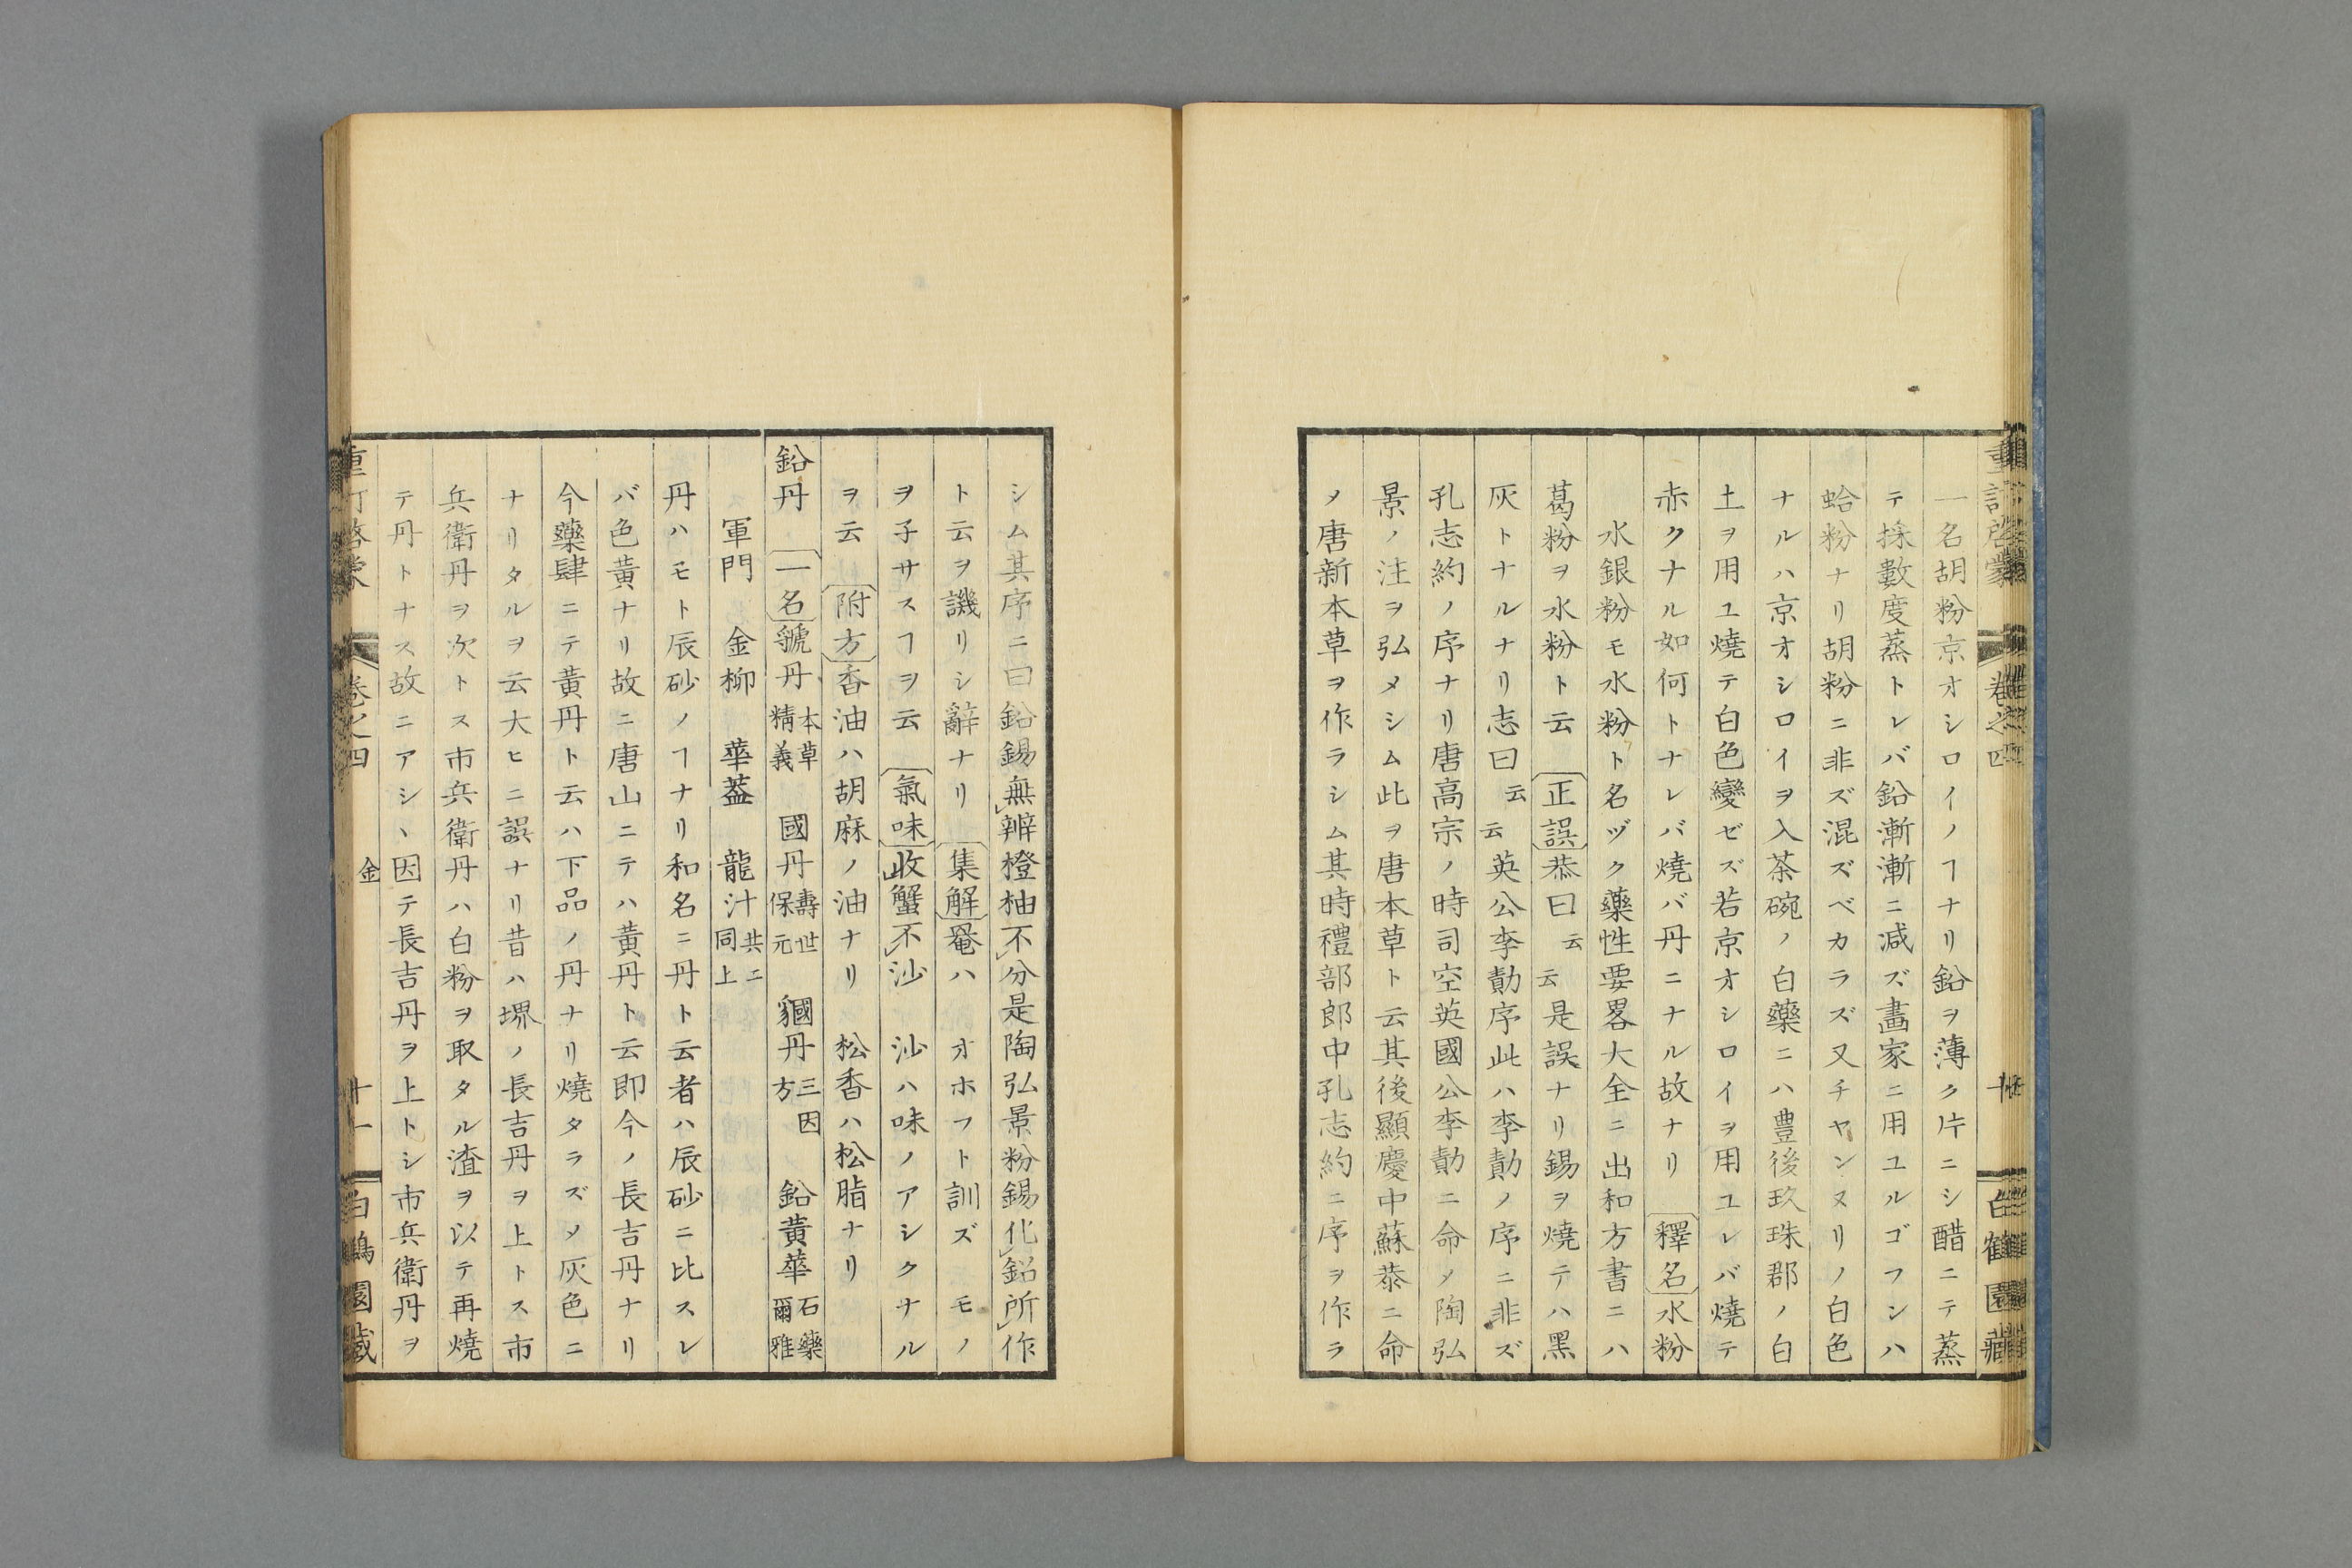 一名胡粉京オシロイノヿナリ鉛ヲ薄ク片ニシ醋ニテ蒸
テ採數度蒸トレバ鉛漸漸ニ减ズ畵家ニ用ユルゴフンハ
蛤粉ナリ胡粉ニ非ズ混ズベカラズ又チヤンヌリノ白色
ナルハ京オシロイヲ入茶碗ノ白藥ニハ豊後玖珠郡ノ白
土ヲ用ユ燒テ白色變ゼズ若京オシロイヲ用ユレバ燒テ
赤クナル如何トナレバ燒バ丹ニナル故ナリ 釋名 水粉
水銀粉モ水粉ト名ヅク藥性要畧大全ニ出和方書ニハ
葛粉ヲ水粉ト云 正誤 恭曰云云是誤ナリ錫ヲ燒テハ黑
灰トナルナリ志曰云云英公李勣序此ハ李勣ノ序ニ非ズ
孔志約ノ序ナリ唐高宗ノ時司空英國公李勣ニ命ノ陶弘
景ノ注ヲ弘メシム此ヲ唐本草ト云其後顯慶中蘇恭ニ命
ノ唐新本草ヲ作ラシム其時禮部郎中孔志約ニ序ヲ作ラ
重訂啓蒙 卷之四 白鶴園藏
シム其序ニ曰鉛錫無辨橙柚不分是陶弘景粉錫化鉛所作
ト云ヲ譏リシ辭ナリ 集解 罨ハオホフト訓ズ モノ
ヲ子サスヿヲ云 氣味 收蟹不沙 沙ハ味ノアシクナル
ヲ云 附方 香油ハ胡麻ノ油ナリ 松香ハ松脂ナリ
鉛丹 一名 號丹 本草精義 國丹 壽世保元 丹 三因方 鉛黃華 石藥爾雅
軍門 金柳 華葢 龍汁 共ニ同上
丹ハモト辰砂ノヿナリ和名ニ丹ト云者ハ辰砂ニ比スレ
バ色黃ナリ故ニ唐山ニテハ黃丹ト云即今ノ長吉丹ナリ
今藥肆ニテ黃丹ト云ハ下品ノ丹ナリ燒タラズノ灰色ニ
ナリタルヲ云大ヒニ誤ナリ昔ハ堺ノ長吉丹ヲ上トス市
兵衛丹ヲ次トス市兵衛丹ハ白粉ヲ取タル渣ヲ以テ再燒
テ丹トナス故ニアシヽ因テ長吉丹ヲ上トシ市兵衛丹ヲ
重訂啓蒙 卷之四 金 十一 白鶴園藏